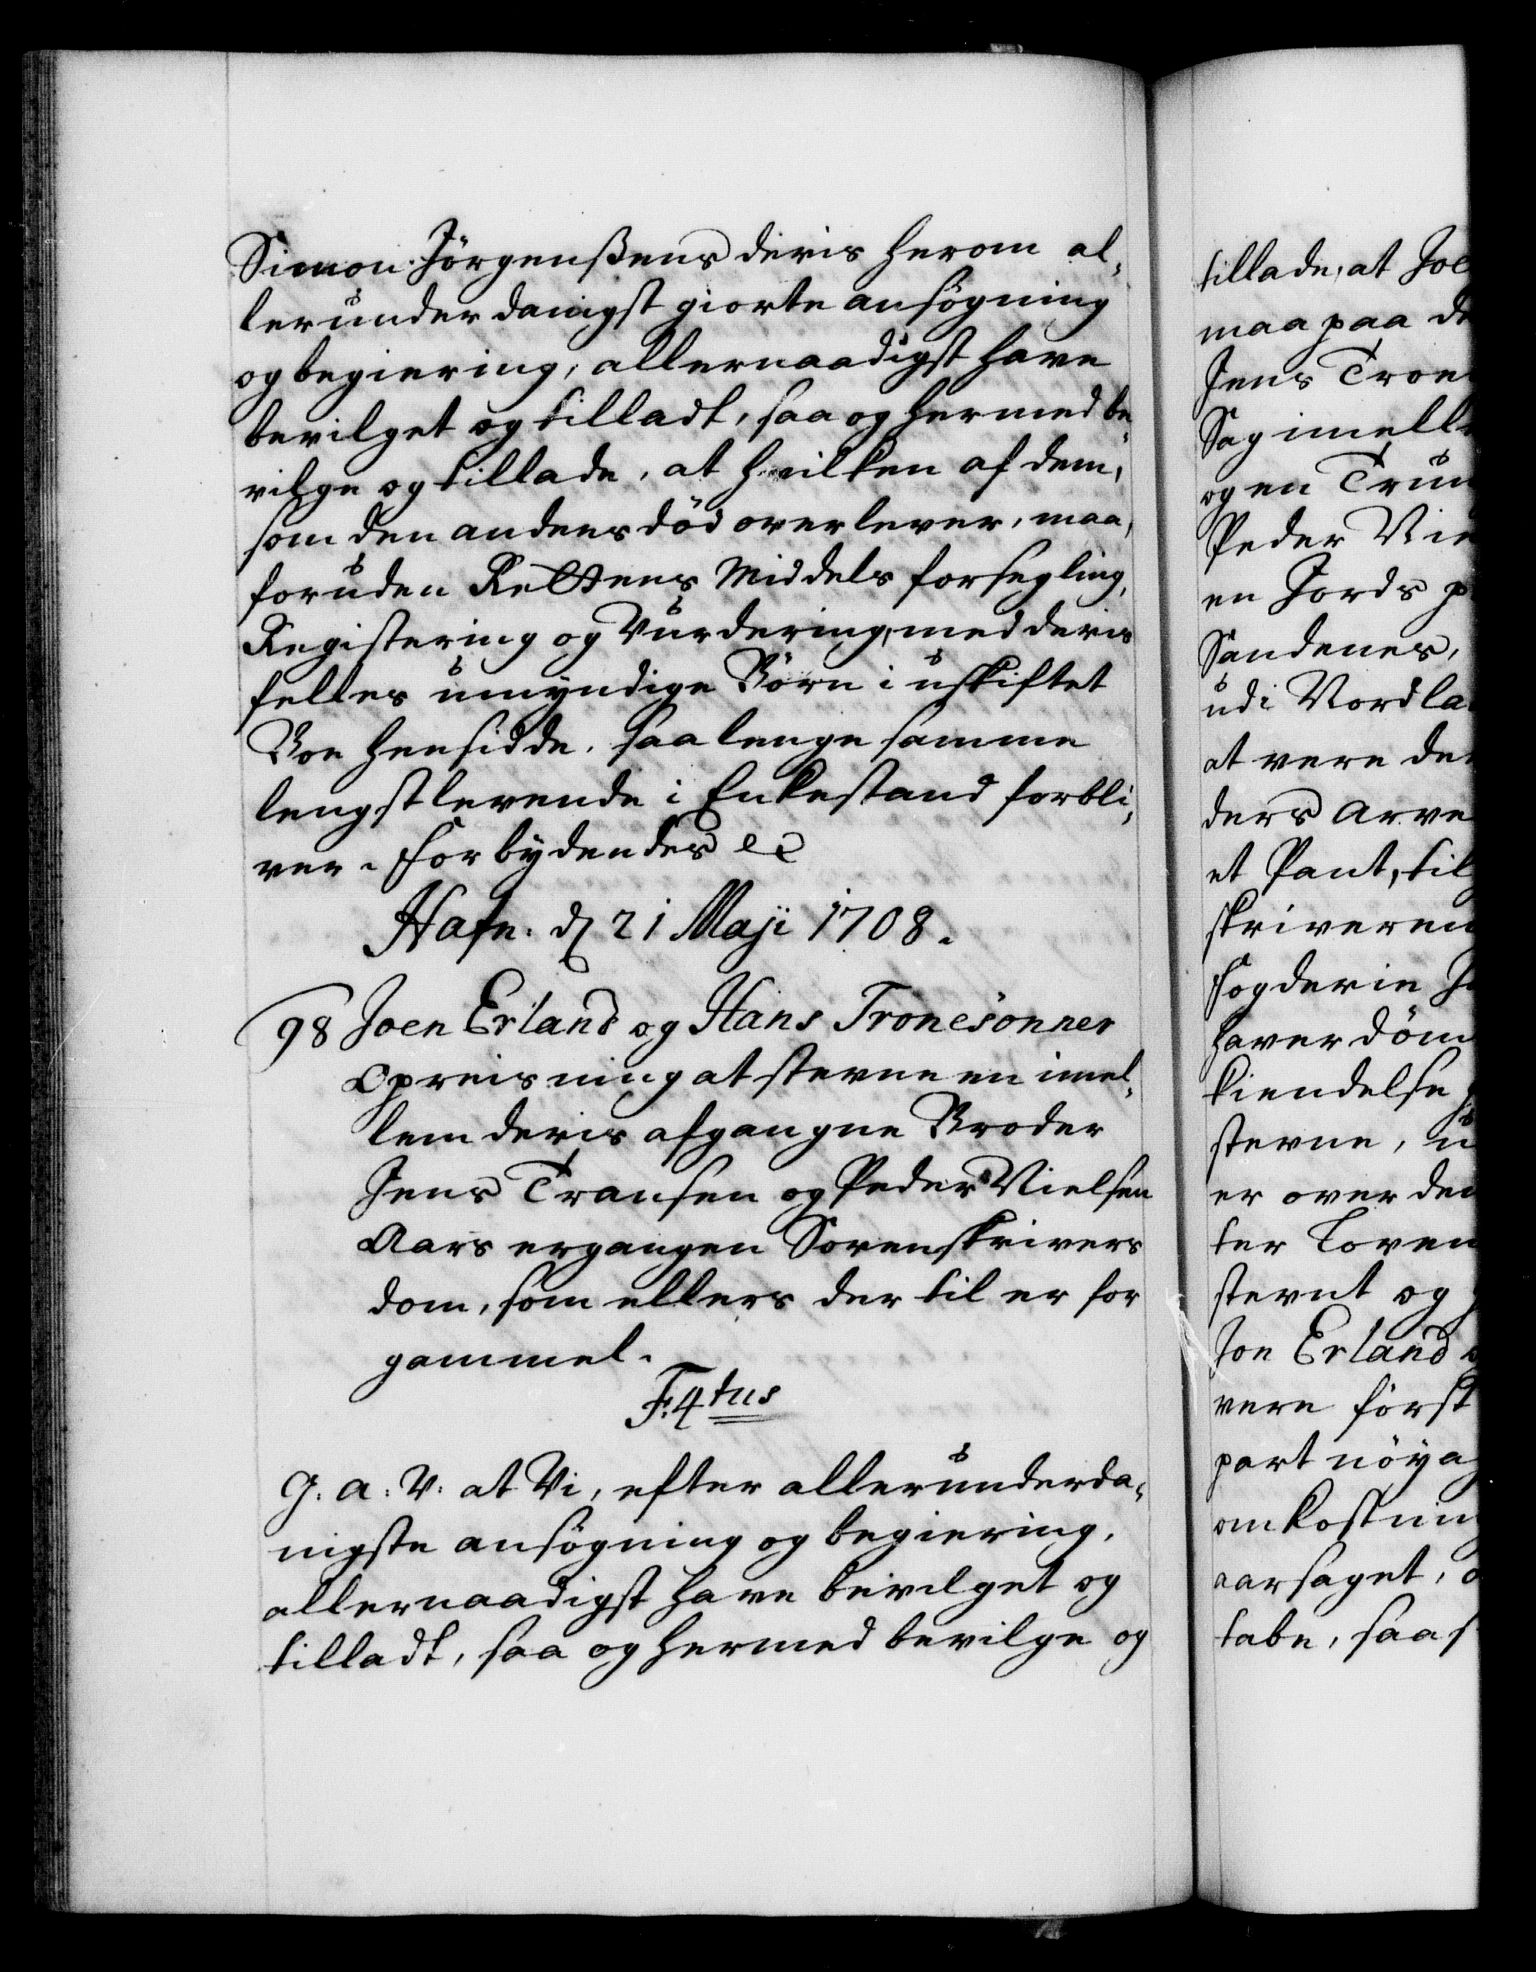 Simon Jörgenßens deris herom al„
lerunderdanigst giorte ansögning
og begiering, allernaadigst have
bevilget og tilladt, saa og hermed be„
vilge og tillade, at hvilken af dem,
som den andens död overlever, maa,
foruden Rettens Middels forsegling,
Registering og Vurdering, med deris
felles umyndige Börn i uskiftet
Boe hensidde, saa lenge samme
lengstlevende i Enkestand forbli„
ver. Forbydendes etc
Hafn. d 21 Maji 1708.
98 Joen Erland og Hans Tronesönner
Opreisning at stevne en imel„
lem deris afgangne Broder
Jens Transen og Peder Nielsen
Aars ergangen Sorenskrivers
dom, som ellers der til er for
gammel.
F: 4tus
G. A. V: at Vi, efter allerunderda„
nigste ansögning og begiering,
allernaadigst have bevilget og
tilladt, saa og hermed bevilge og
tillade, at Joe
maa paa de
Jens Trone
Sag imelle
og en Trun
Peder Nie
en Jords p
Sandenes,
udi Nordla
at vere de
ders Arve
et Pant, til
skriveren
Fogderie
haver döm
kiendelse
stevne, u
er over den
ter Loven
stevnt og
Jon Erland
vere först
part nöya
omkostnin
aarsaget,
tabe, saa s